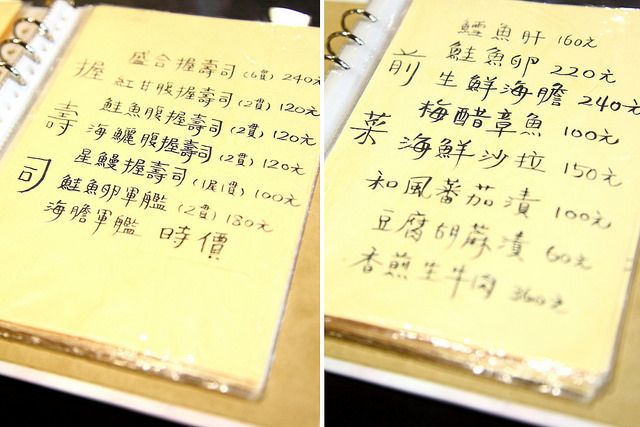 握壽司
盛合握壽司(6貫)240元
紅甘腹握壽司(2貫)120元
鮭魚腹握壽司(2貫)120元
海鱺腹握壽司(2貫)120元
星鰻握壽司(1尾1貫)100元
鮭魚卵軍艦(2貫)180元
海膽軍艦 時價
前菜
鱈魚肝 160元
鮭魚卵 220元
生鮮海膽 240元
梅醋章魚 100元
海鮮沙拉 150元
和風蕃茄漬 100元
豆腐胡蔴漬 60元
香煎生牛肉 360元